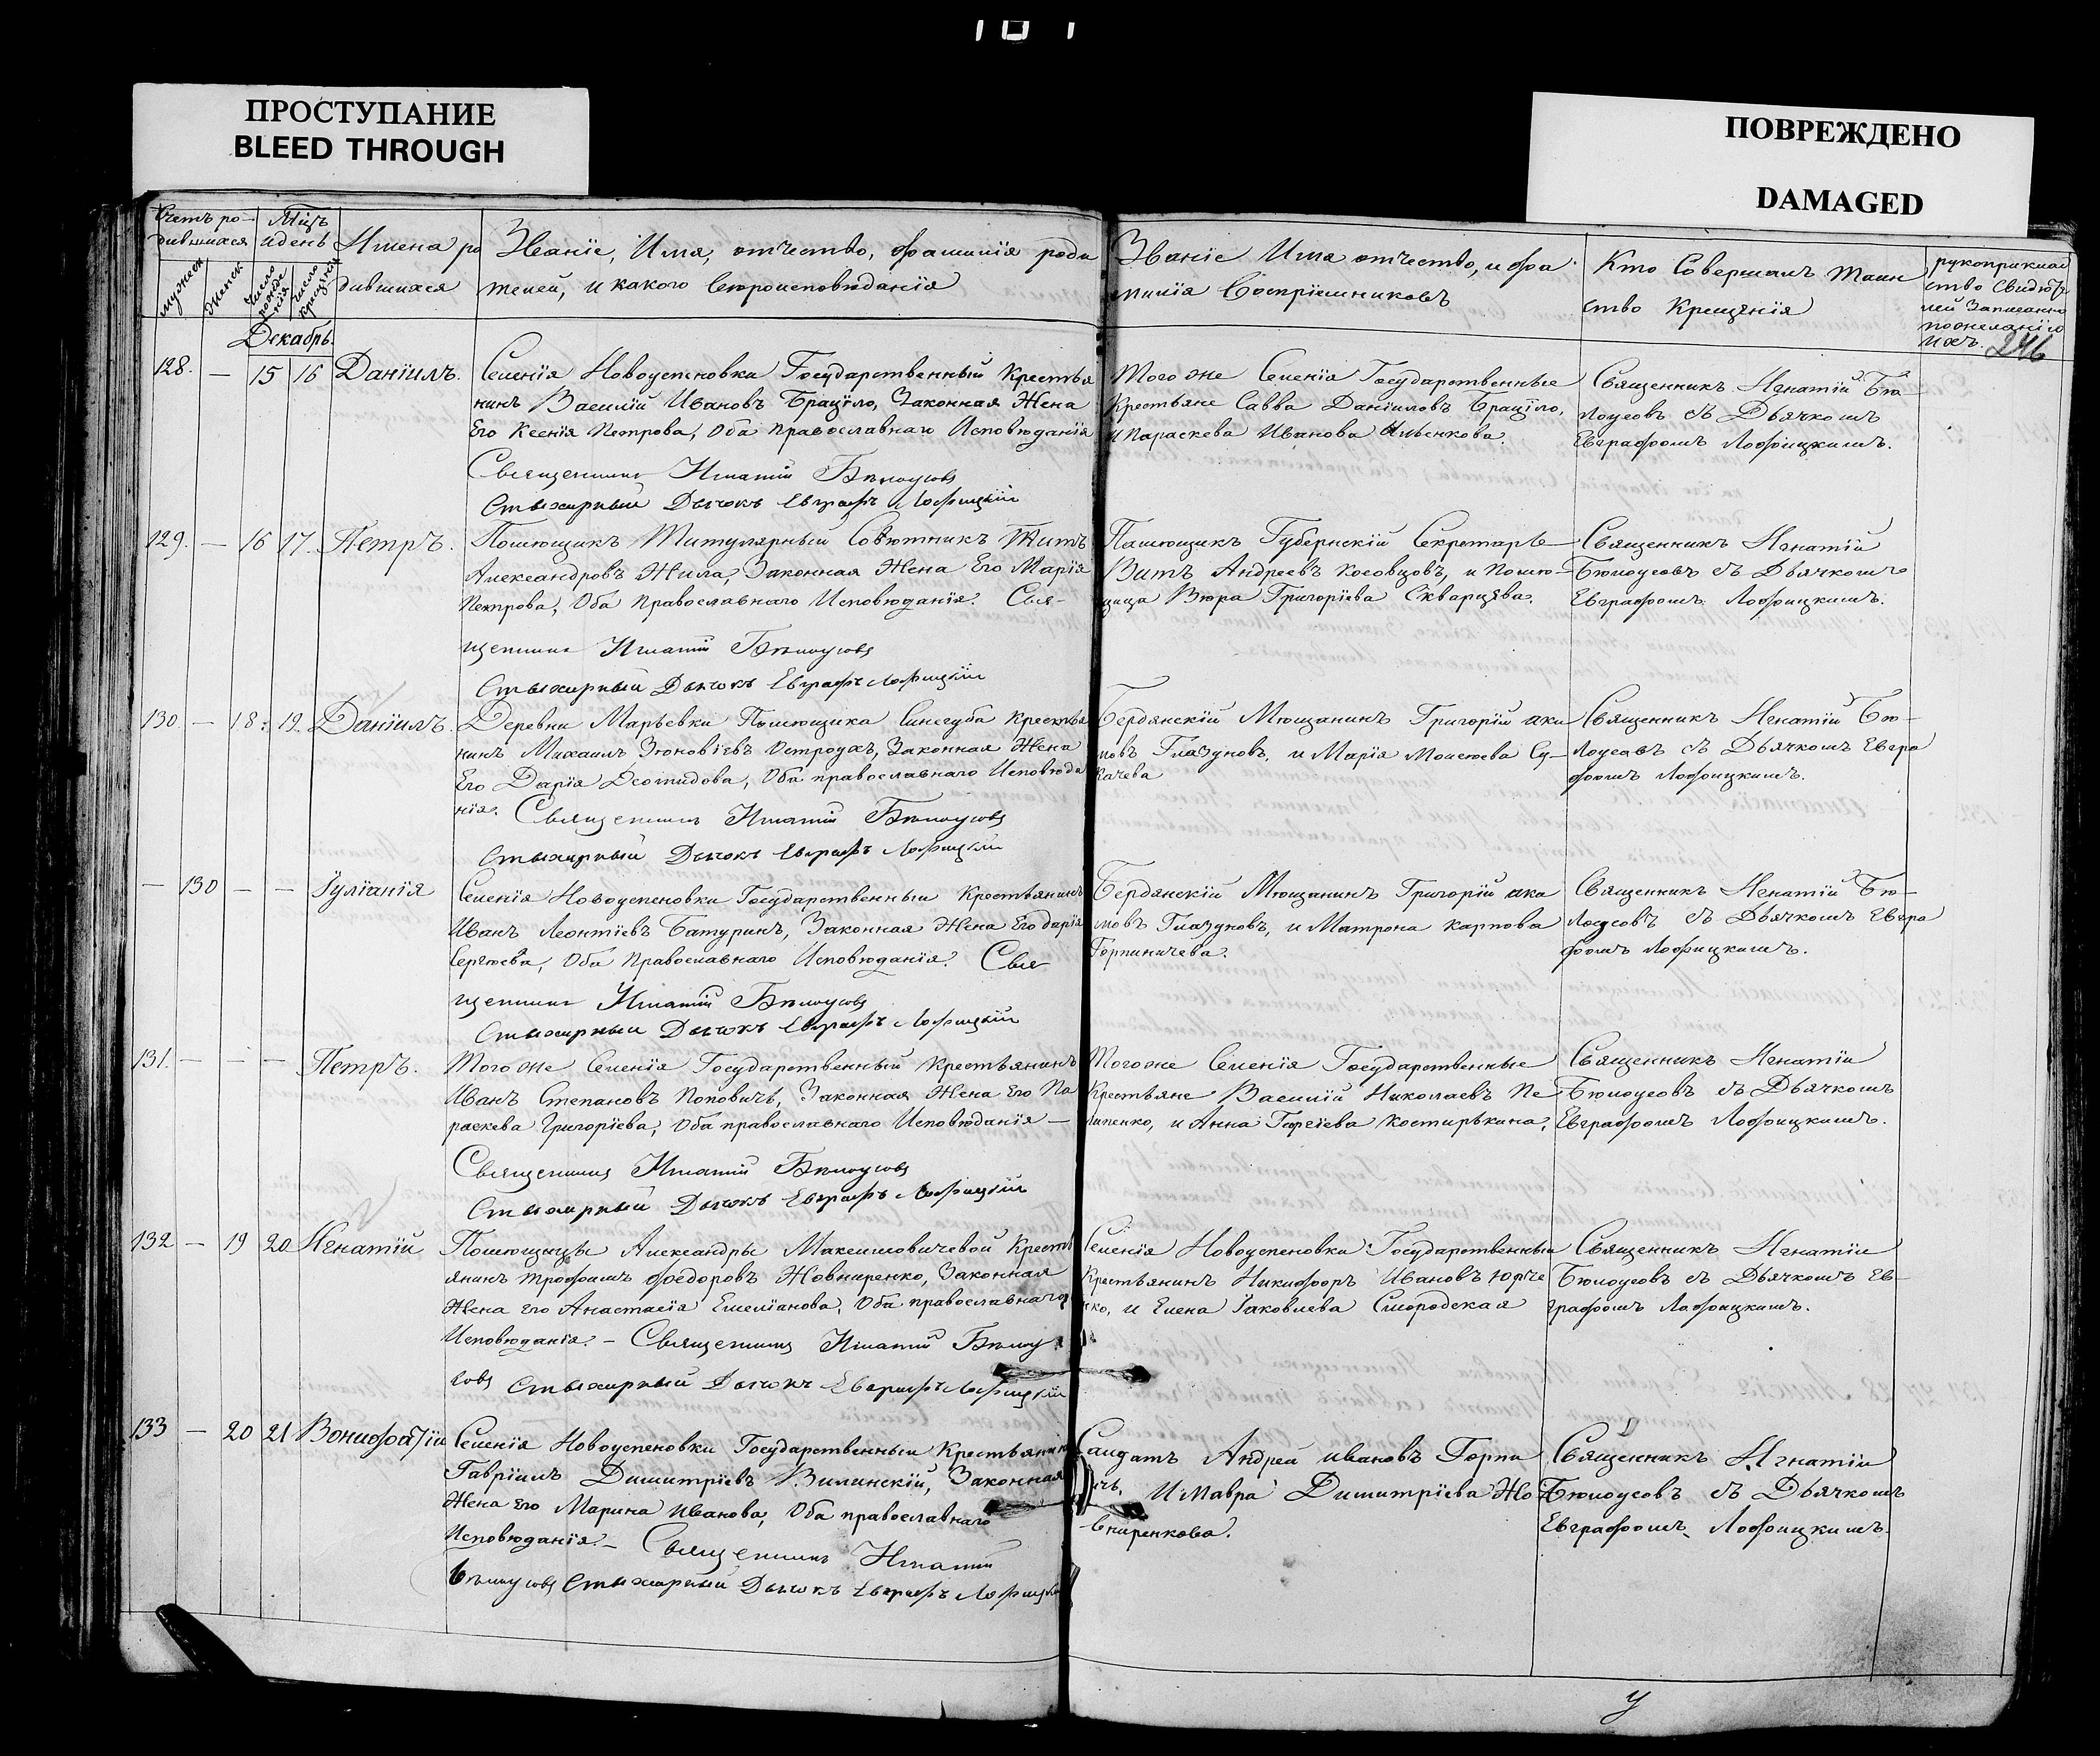 ПРОСТУПАНИЕ
BLEED THROUGH
ПОВРЕЖДЕНО
DAMAGED
Счетъ ро-
дившихся
Мцъ
и день
Имена ро
дившихся
Званіе, Имя, отчество, фамилія роди
телей, и какого вѣроисповѣданія
Званіе Имя отчество, и фа
милія Воспріемниковъ
Кто Совершалъ Таин
ство Крещенія
рукоприклад
ство Свидѣте
лей Записанно
пожеланію
ихъ.
246
мужеск
женск
Число рожденія
Число крещенія
Декабрь.
128. — 15 16 Даніилъ.
Селенія Новоуспеновки Государственный Крестья
нинъ Василій Ивановъ Браціло, Законная Жена
Его Ксенія Петрова, Оба православнаго Исповѣданія
Священникъ Игнатій Бѣлоусовъ
Стихарный Дьячокъ Евграфъ Лофицкій
Того же Селенія Государственные
Крестьяне Савва Даніиловъ Браціло,
и Параскева Иванова
Священникъ Игнатій Бѣ-
лоусовъ съ Дьячкомъ
Евграфомъ Лофицкимъ.
129. — 16 17. Петръ.
Помѣщикъ Титулярный Совѣтникъ Титъ
Александровъ Жила, Законная Жена Его Марія
Петрова, Оба Православнаго Исповѣданія. Свя-
щенникъ Игнатій Бѣлоусовъ
Стихарный Дьячокъ Евграфъ Лофицкій
Памѣщикъ Губернскій Секретарь
Витъ Андреевъ Косовцовъ, и Помѣ-
щица Вѣра Григоріева Скварцева.
Священникъ Игнатій
Бѣлоусовъ съ Дьячкомъ
Евграфомъ Лофицкимъ.
130. — 18. 19. Даніилъ.
Деревни Марьевки Помѣщика Синегуба Крестья
нинъ Михаилъ Зѣновіевъ Остроухъ, Законная Жена
Его Дарія Деомидова, Оба православнаго Исповѣда
нія. Священникъ Игнатій Бѣлоусовъ
Стихарный Дьячокъ Евграфъ Лофицкій
Бердянскій Мѣщанинъ Григорій аки
мовъ Глазуновъ, и Марія Моисѣева Су-
качева
Священникъ Игнатій Бѣ-
лоусовъ съ Дьячкомъ Евгра
фомъ Лофицкимъ.
— 130 — — Іуліанія
Селенія Новоуспеновки Государственный Крестьянинъ
Иванъ Леонтіевъ Батуринъ, Законная Жена Его дарія
Сергѣева, Оба Православнаго Исповѣданія. Свя
щенникъ Игнатій Бѣлоусовъ
Стихарный Дьячокъ Евграфъ Лофицкій
Бердянскій Мѣщанинъ Григорій аки
мовъ Глазуновъ, и Матрона карпова
Горпиничева.
Священникъ Игнатій Бѣ-
лоусовъ съ Дьячкомъ Евгра
фомъ Лофицкимъ.
131. — — — Петръ.
Того же Селенія Государственный Крестьянинъ
Иванъ Степановъ Поповичъ, Законная Жена Его Па
раскева Григоріева, Оба православнаго Исповѣданія —
Священникъ Игнатій Бѣлоусовъ
Стихарный Дьячокъ Евграфъ Лофицкій
Того же Селенія Государственные
Крестьяне Василій Николаевъ Пе
липенко, и Анна Георгіева Костирькина,
Священникъ Игнатій
Бѣлоусовъ съ Дьячкомъ
Евграфомъ Лофицкимъ.
132 — 19 20 Игнатій
Помѣщицы Александры Максимовичевой Кресть
янинъ трофимъ федоровъ Жовниренко, Законная
Жена Его Анастасія Емеліанова, Оба православнаго
Исповѣданія. — Священникъ Игнатій Бѣлоу
совъ Стихарный Дьячокъ Евграфъ Лофицкій
Селенія Новоуспеновки Государственный
Крестьянинъ Никифоръ Ивановъ Юрче
нко, и Елена Іаковлева Смородская
Священникъ Игнатій
Бѣлоусовъ съ Дьячкомъ Ев-
графомъ Лофицкимъ.
133 — 20 21 Вонифатій
Селенія Новоуспеновки Государственный Крестьянинъ
Гавріилъ Димитріевъ Вилинскій, Законная
Жена Его Марина Иванова, Оба православнаго
Исповѣданія. — Священникъ Игнатій
Бѣлоусовъ Стихарный Дьячокъ Евграфъ Лофицкій
Салдатъ Андрей Ивановъ Горпи
ичъ, И Мавра Димитріева Жо
вниренкова.
Священникъ Игнатій
Бѣлоусовъ съ Дьячкомъ
Евграфомъ Лофицкимъ.